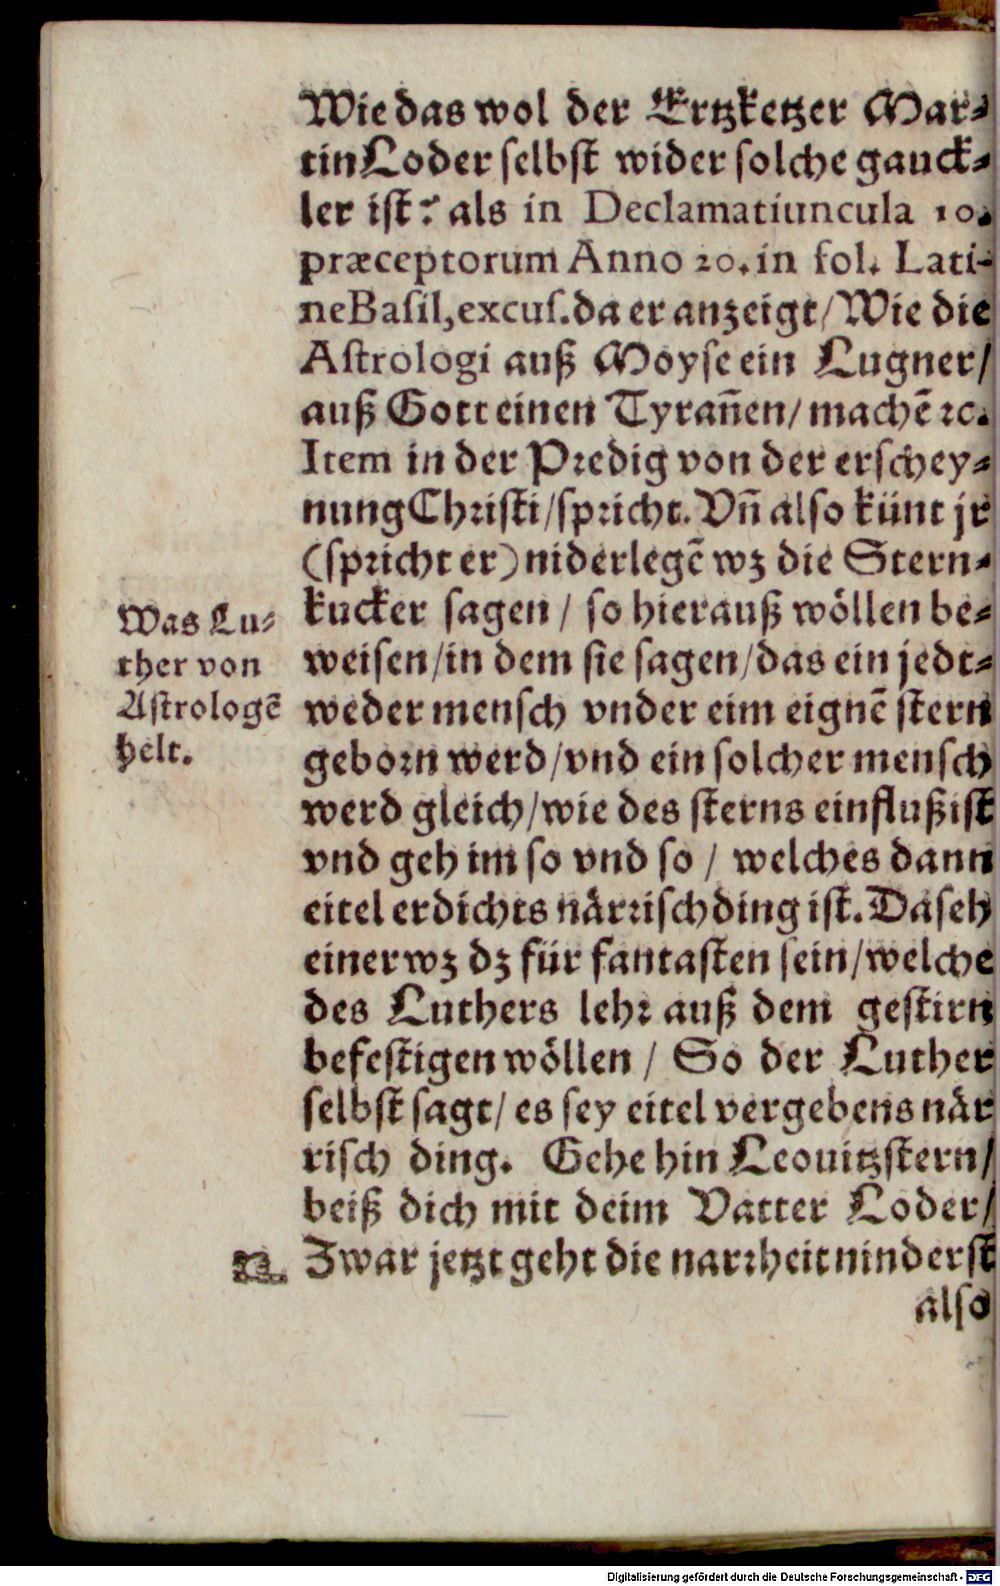 Wie das wol der Ertzketzer Mar⸗
tin Loder selbst wider solche gauck⸗
ler ist: als in Declamatiuncula 10.
præceptorum Anno 20. in fol. Lati-
ne Basil, excus. da er anzeigt/ Wie die
Astrologi auß Moyse ein Lugner/
auß Gott einen Tyrañen/ machẽ ꝛc.
Item in der Predig von der erschey⸗
nung Christi/ spricht. Vñ also künt jr
(spricht er) niderlegẽ wz die Stern⸗
kucker sagen / so hierauß wöllen be⸗
weisen/ in dem sie sagen/ das ein jedt⸗
weder mensch vnder eim eignẽ stern
geborn werd/ vnd ein solcher mensch
werd gleich/ wie des sterns einfluß ist
vnd geh im so vnd so / welches dann
eitel erdichts närrisch ding ist. Da seh
einer wz dz für fantasten sein/ welche
des Luthers lehr auß dem gestirn
befestigen wöllen / So der Luther
selbst sagt/ es sey eitel vergebens när
risch ding. Gehe hin Leouitzstern/
beiß dich mit deim Vatter Loder/
Zwar jetzt geht die narrheit ninderst
also
Was Lu⸗
ther von
Astrologẽ
helt.
Digitalisierung gefördert durch die Deutsche Forschungsgemeinschaft - DFG